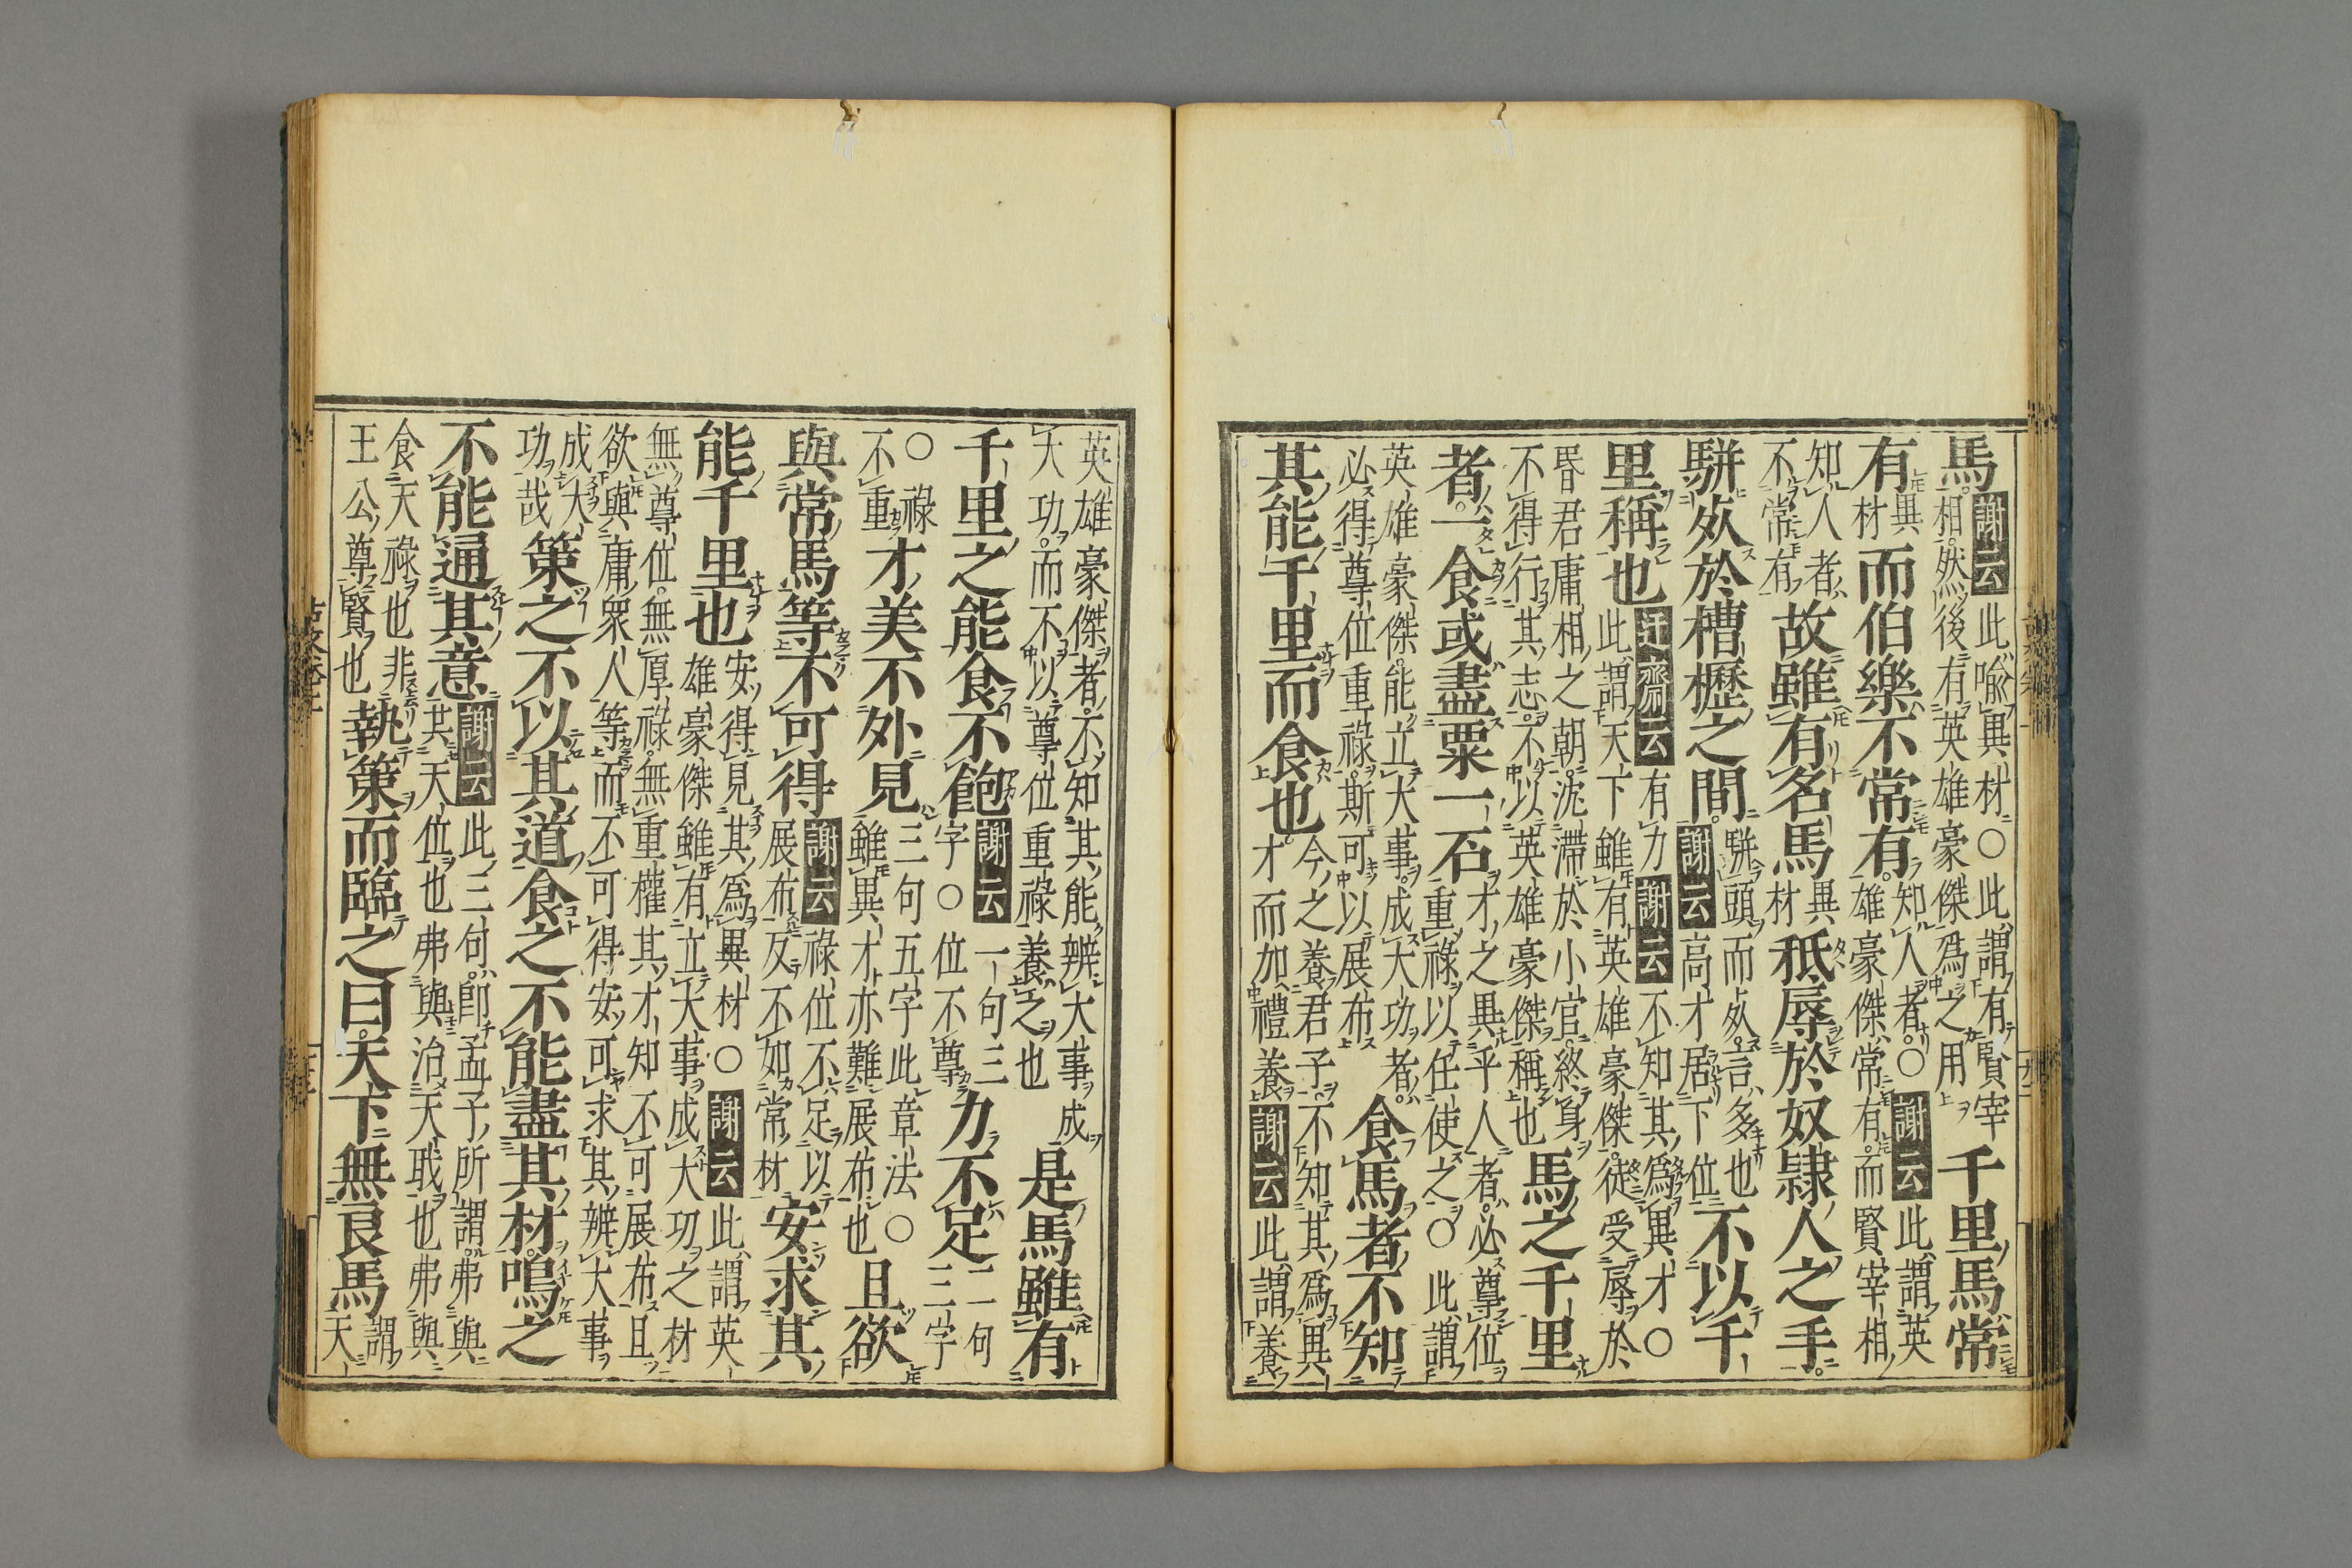 馬謝云此喩異材○此謂有賢宰相然後有英雄豪傑爲之用千里馬常
有異材而伯樂不常有知人者○謝云此謂英雄豪傑常有而賢宰相
知人者不常有故雖有名馬異材秪辱於奴隷人之手
駢死於槽櫪之間駢頭而死言多也謝云高才居下位不以千
里稱也迂齋云有力謝云不知其爲異才○此謂天下雖有英雄豪傑徒受辱於
昬君庸相之朝沈滯於小官終身不得行其志不以英雄豪傑稱也馬之千里
者一食或盡粟一石才之異乎人者必尊位重祿以任使之○此謂
英雄豪傑能立大事成大功者必得尊位重祿斯可以展布食馬者不知
其能千里而食也今之養君子不知其爲異才而加禮養謝云此謂養
英雄豪傑者不知其能辨大事成大功而不以尊位重祿養之也是馬雖有
千里之能食不飽謝云一句三字○位不尊力不足二句三字
○祿不重才美不外見三句五字此章法○雖異才亦難展布也且欲
與常馬等不可得謝云祿位不足以展布反不如常材安求其
能千里也安得見其爲異材○謝云此謂英雄豪傑雖有立大事成大功之材
無尊位無厚祿無重權其才知不可展布且欲與庸衆人等而不可得安可求其辨大事
成大功哉策之不以其道食之不能盡其材嗚之
不能通其意謝云此三句即孟子所謂弗與共天位也弗與治天職也弗與
食天祿也非王公尊賢也執策而臨之曰天下無良馬謂天